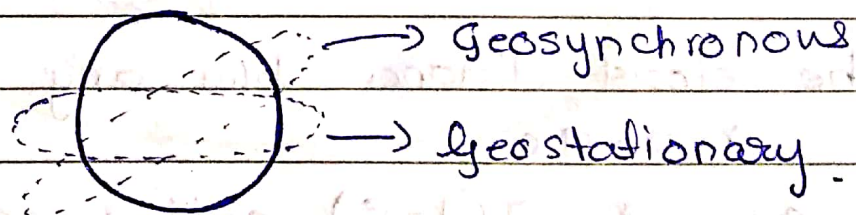 Geosynchronous
Geostationary.